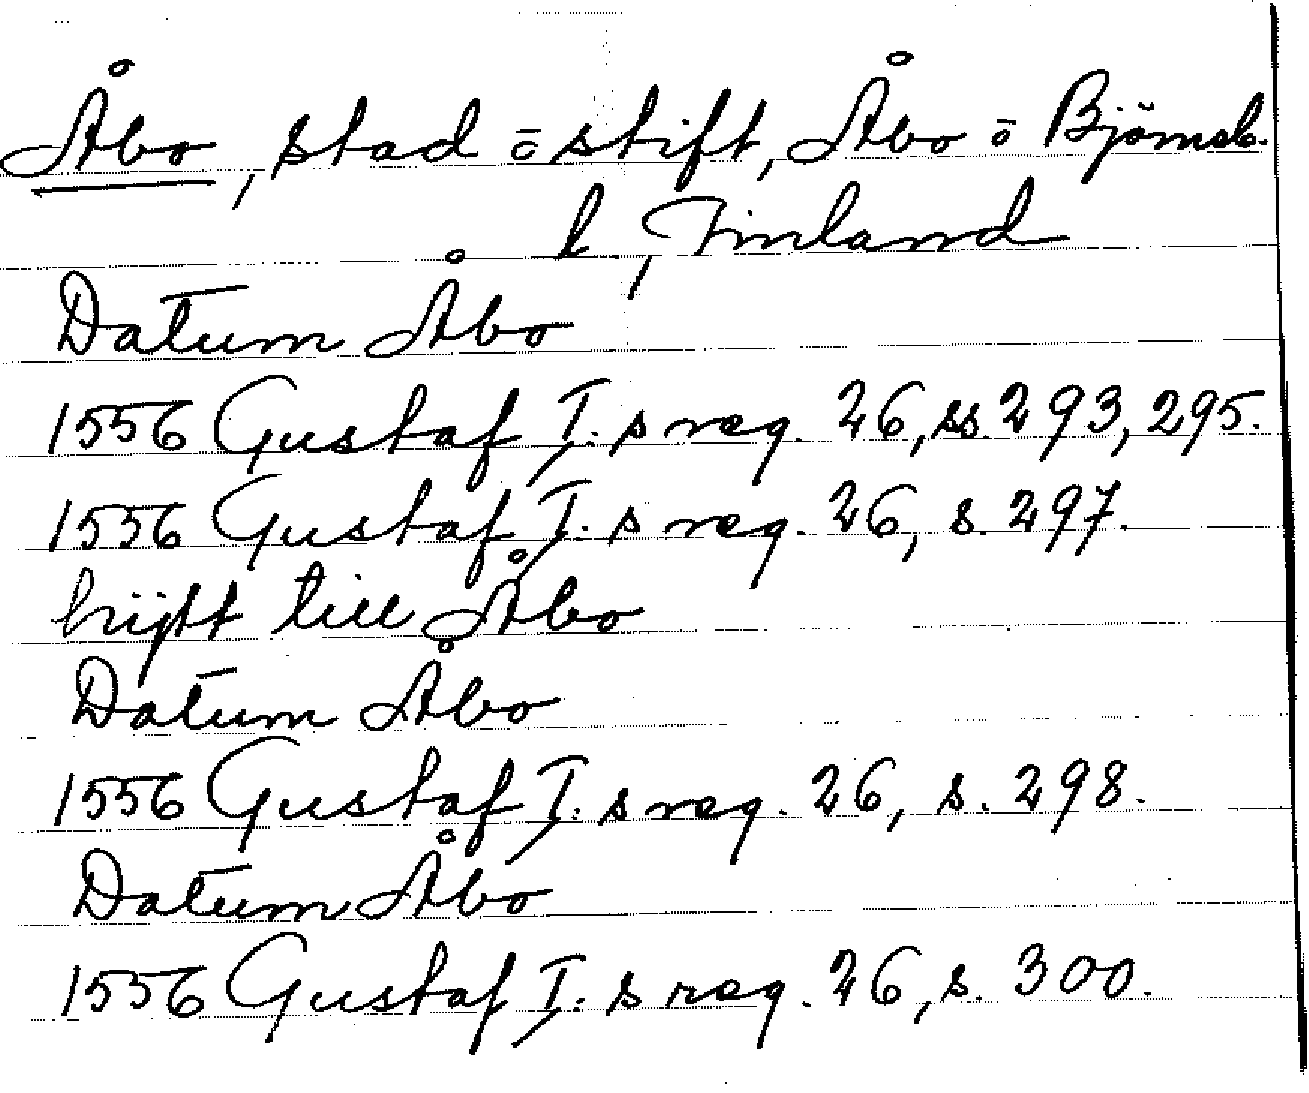 Åbo, stad ō stift, Åbo ō Björneb.
l, Finland
Datum Åbo
1556 Gustaf I:s reg. 26, ss. 293, 295.
1556 Gustaf I:s reg. 26, s. 297.
hijtt till Åbo
Datum Åbo
1556 Gustaf I:s reg. 26, s. 298.
Datum Åbo
1556 Gustaf I:s reg. 26, s. 300.